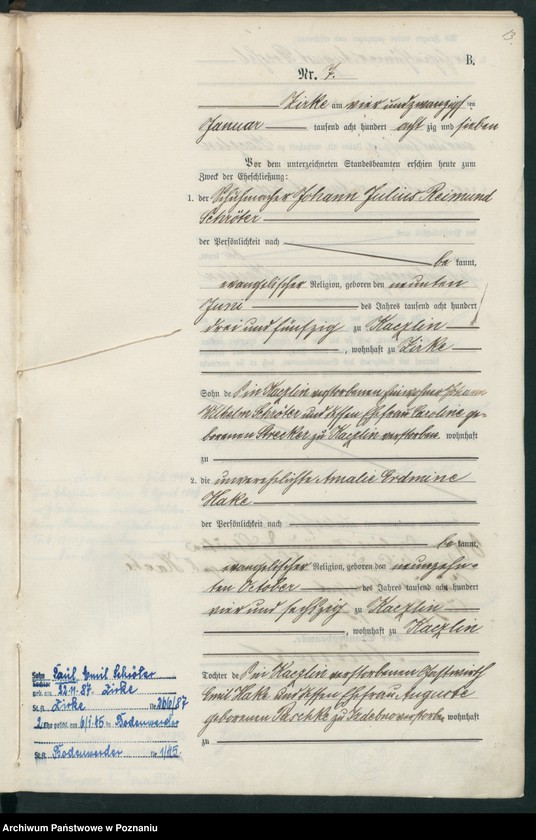 13.
B.
Nr. 7.
Zirke am vier und zwanzigsten
Januar tausend acht hundert acht zig und sieben
Vor dem unterzeichneten Standesbeamten erschien heute zum
Zweck der Eheschließung:
1. der Schuhmacher Johann Julius Reimund
Schröter
der Persönlichkeit nach
be kannt,
evangelischer Religion, geboren den neunten
Juni des Jahres tausend acht hundert
drei und fünfzig zu Kaczlin
, wohnhaft zu Zirke
Sohn des in Kaczlin verstorbenen Einwohners Johann
Wilhelm Schröter und dessen Ehefrau Caroline ge-
borenen Strecker zu Kaczlin verstorben wohnhaft
zu
2. die unverehelichte Amalie Erdmine
Hake
der Persönlichkeit nach
be kannt,
evangelischer Religion, geboren den neunzehn-
ten October des Jahres tausend acht hundert
vier und sechszig zu Kaczlin
, wohnhaft zu Kaczlin
Tochter des in Kaczlin verstorbenen Gastwirth
Emil Hake und dessen Ehefrau Auguste
geborenen Paschke zu verstorben, wohnhaft
zu
Sohn Paul Emil Schröter
geb. am 22.11.87 Zirke
St.A. Zirke Nr. 206/87
2. Ehe geschl. am 6/1.45 in Bodenwerder
St.A. Bodenwerder Nr. 1/45.
Archiwum Państwowe w Poznaniu